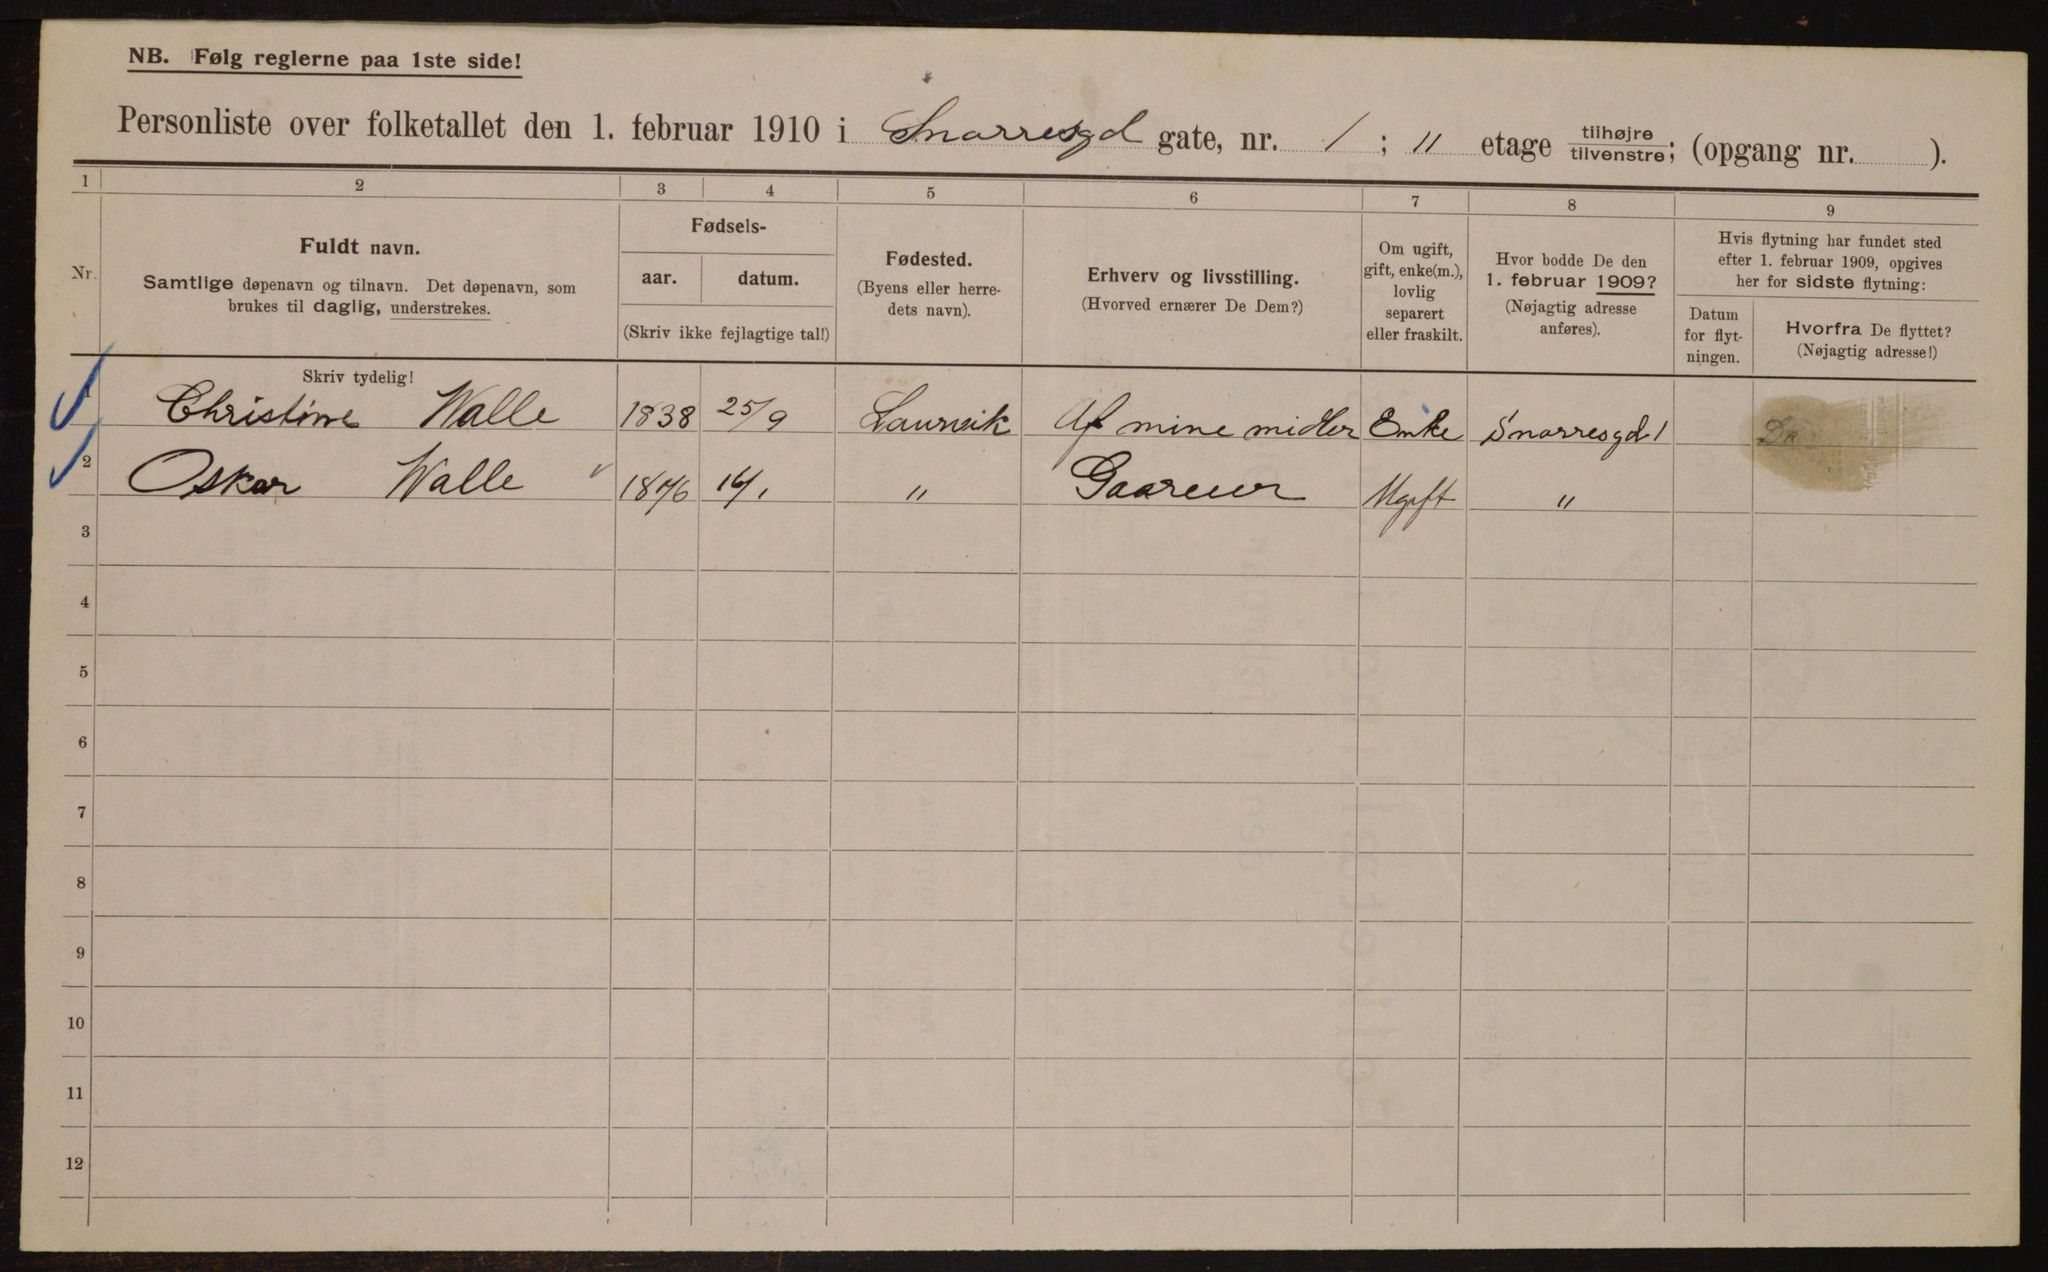 NB. Følg reglerne paa 1ste side!
Personliste over folketallet den 1. februar 1910 i Snorresgd gate, nr. 1 ; 11 etage tilhøjre/tilvenstre; (opgang nr. ).
1 2 3 4 5 6 7 8 9
Nr.
Fuldt navn.
Samtlige døpenavn og tilnavn. Det døpenavn, som
brukes til daglig, understrekes.
Fødsels-
aar. datum.
(Skriv ikke fejlagtige tal!)
Fødested.
(Byens eller herre-
dets navn).
Erhverv og livsstilling.
(Hvorved ernærer De Dem?)
Om ugift,
gift, enke(m.),
lovlig
separert
eller fraskilt.
Hvor bodde De den
1. februar 1909?
(Nøjagtig adresse
anføres).
Hvis flytning har fundet sted
efter 1. februar 1909, opgives
her for sidste flytning:
Datum
for flyt-
ningen.
Hvorfra De flyttet?
(Nøjagtig adresse!)
Skriv tydelig!
1 Christine Walle 1838 25/9 Laurvik Af mine midler Enke Snorresgd 1
2 Oskar Walle 1876 " Ugift "
3
4
5
6
7
8
9
10
11
12